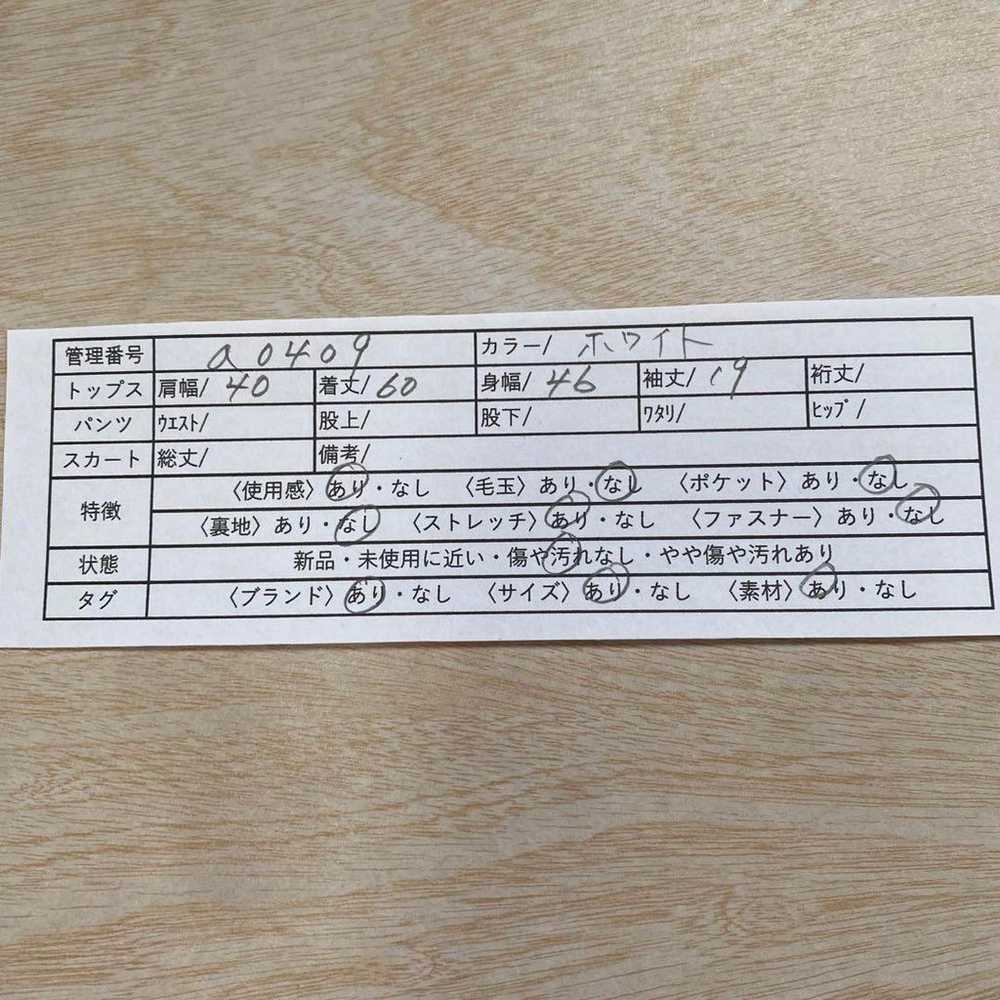 管理番号 a0409 カラー/ ホワイト
トップス 肩幅/ 40 着丈/ 60 身幅/ 46 袖丈/ 19 裄丈/
パンツ ｳｴｽﾄ/ 股上/ 股下/ ﾜﾀﾘ/ ﾋｯﾌﾟ/
スカート 総丈/ 備考/
特徴 〈使用感〉あり・なし 〈毛玉〉あり・なし 〈ポケット〉あり・なし
〈裏地〉あり・なし 〈ストレッチ〉あり・なし 〈ファスナー〉あり・なし
状態 新品・未使用に近い・傷や汚れなし・やや傷や汚れあり
タグ 〈ブランド〉あり・なし 〈サイズ〉あり・なし 〈素材〉あり・なし